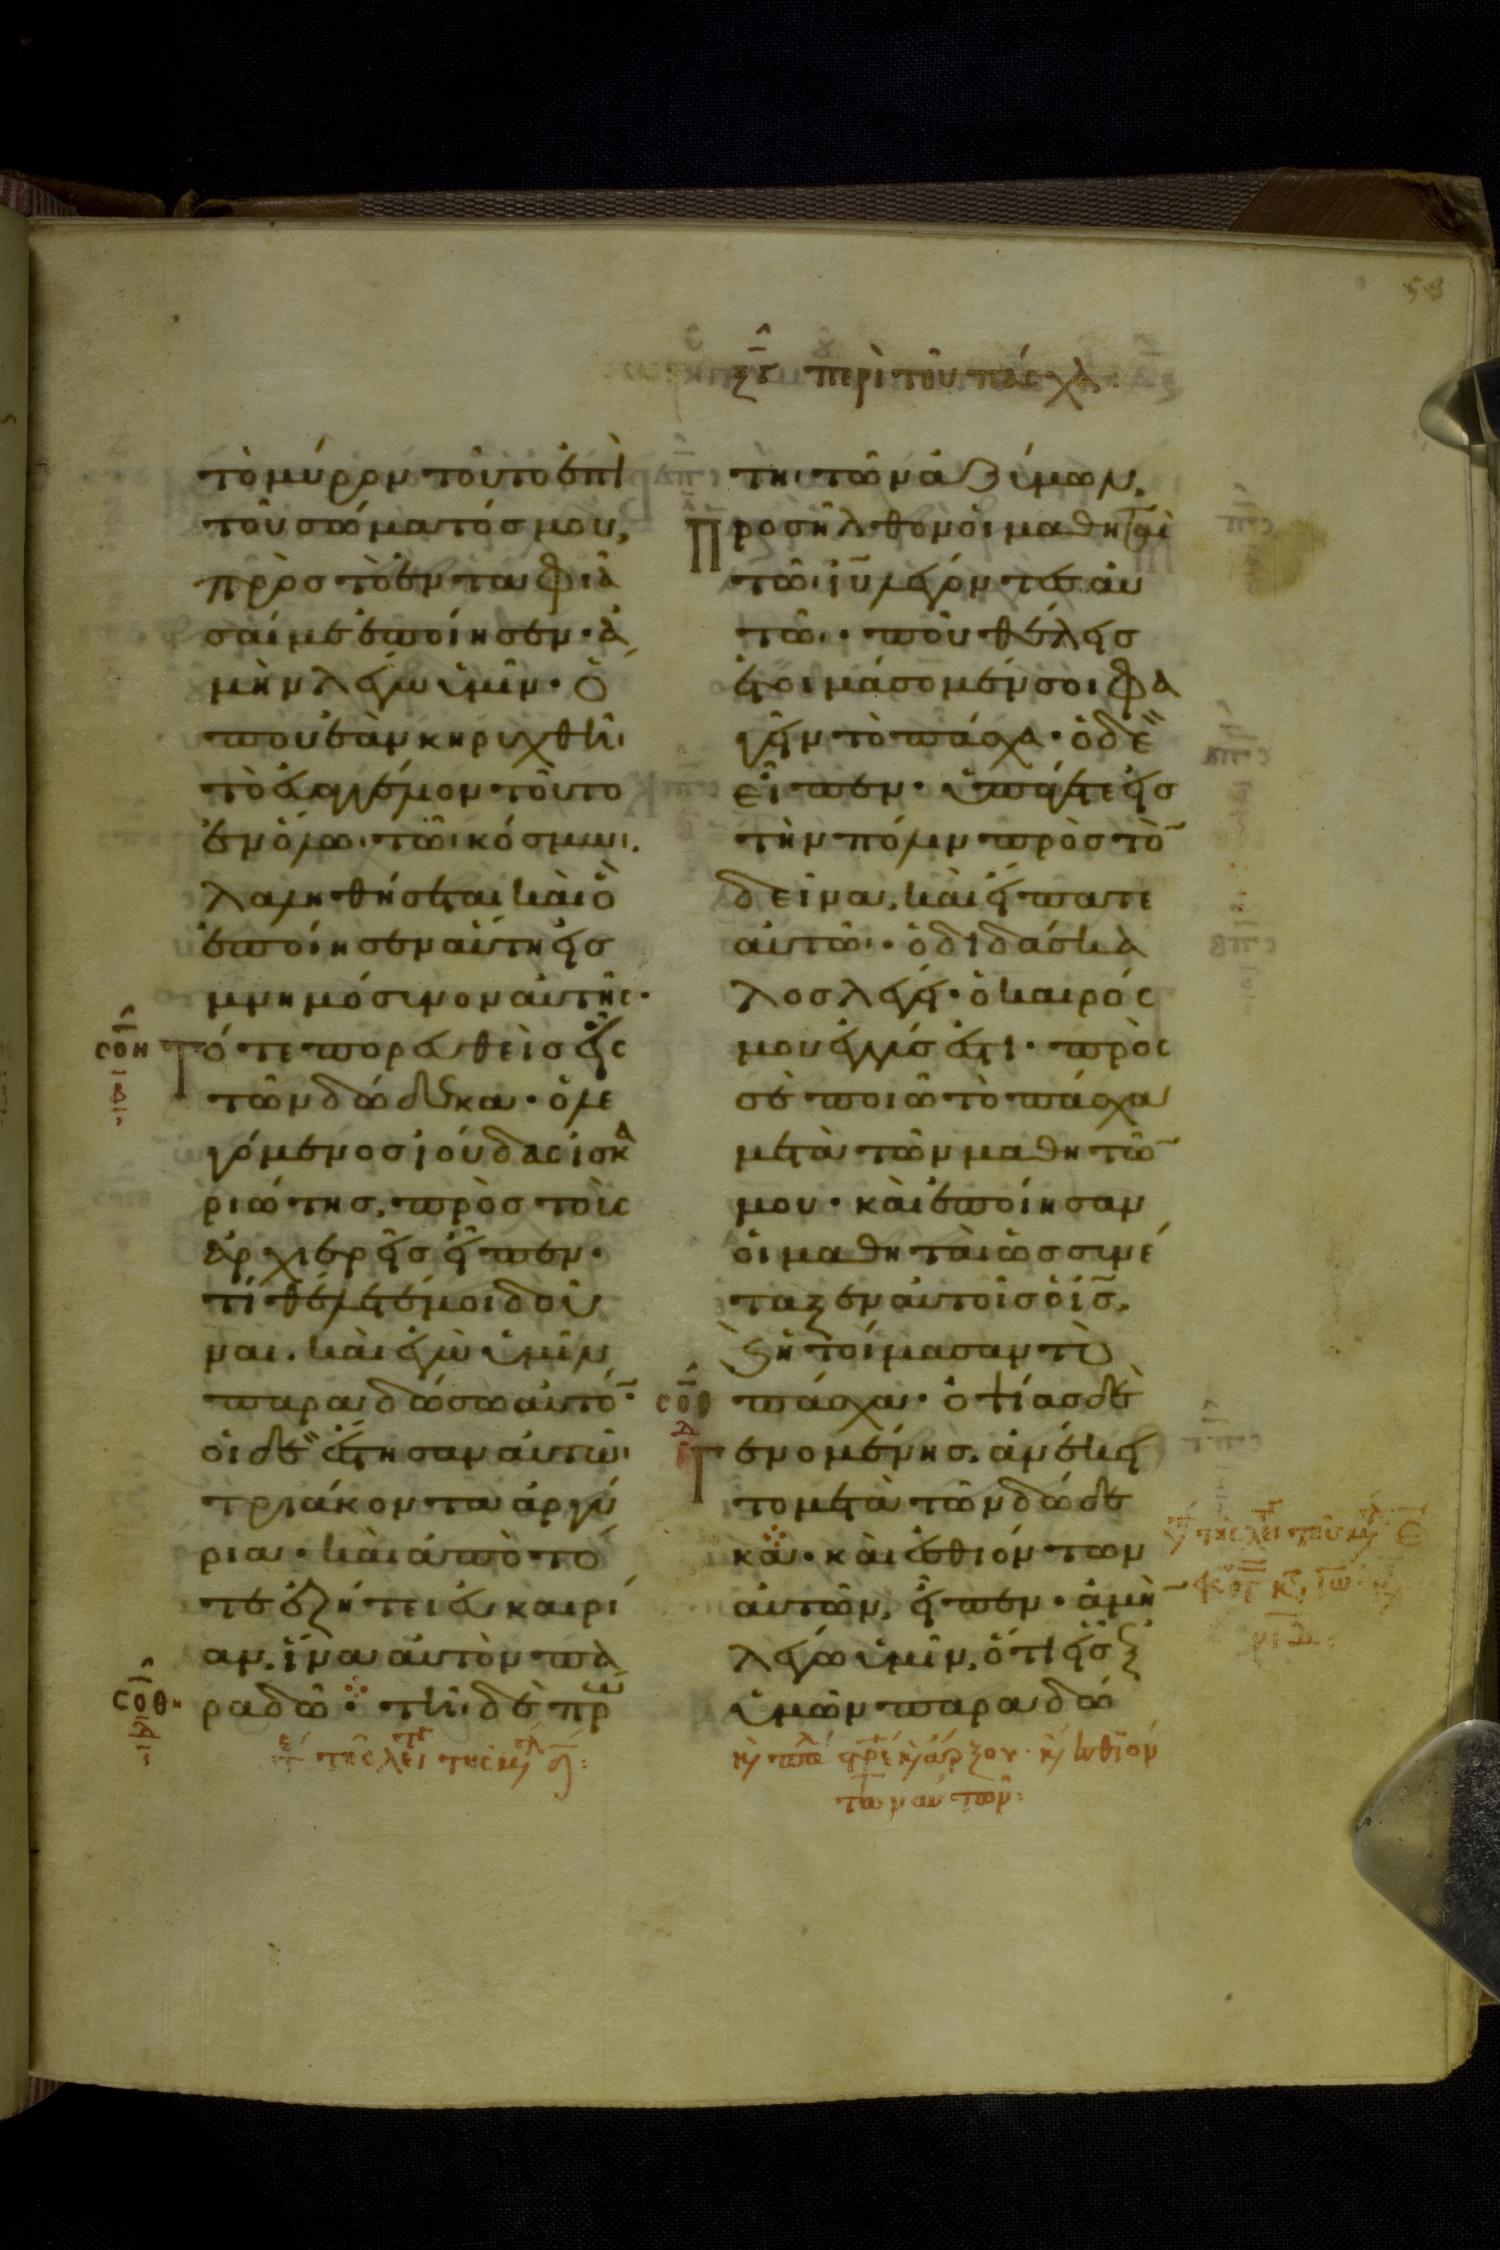 ξγ περὶ τοῦ πάσχα
58
τὸ μύρον τοῦτο ἐπὶ
τοῦ σώματός μου,
πρὸς τὸ ἐνταφιά
σαί με ἐποίησεν· ἀ
μὴν λέγω ὑμῖν· ὅ
που ἐὰν κηρυχθῆι
τὸ εὐαγγέλιον τοῦτο
ἐν ὅλωι τῶι κόσμωι,
λαληθήσεται καὶ ὃ
ἐποίησεν αὕτη εἰς
μνημόσυνον αὐτῆς·
σοη
Τότε πορευθεὶς εἷς
τῶν δώδεκα· ὁ λε
γόμενος ἰούδας ἰσκα
ριώτης, πρὸς τοὺς
ἀρχιερεῖς εἶπεν·
τί θέλετέ μοι δοῦ
ναι· καὶ ἐγὼ ὑμῖν
παραδώσω αὐτό̄·
οἱ δὲ ἔστησαν αὐτῶι
τριάκοντα ἀργύ
ρια· καὶ ἀπὸ τό
τε ἐζήτει εὐκαιρί
αν, ἵνα αὐτὸν πα
σοθ
ραδῶ· τῆι δὲ πρω
τηι τῶν ἀζύμων,
Προσῆλθον οἱ μαθηταὶ
τῶι ιυ λέγοντες αὐ
τῶι· ποῦ θέλεις
ἑτοιμάσομέν σοι φα
γεῖν τὸ πάσχα· ὁ δὲ
εἶπεν· ὑπάγετε εἰς
τὴν πόλιν πρὸς τὸ̄
δεῖνα, καὶ εἴπατε
αὐτῶι· ὁ διδάσκα
λος λέγει· ὁ καιρός
μου ἐγγύς ἐστι· πρὸς
σὲ ποιῶ τὸ πάσχα
μετὰ τῶν μαθητῶ̄
μου· καὶ ἐποίησαν
οἱ μαθηταὶ ὡς συνέ
ταξεν αὐτοῖς ὁ ις,
καὶ ἡτοίμασαν τὸ
σπ
πάσχα· ὀψίας δὲ
γενομένης, ἀνέκει
το μετὰ τῶν δώδε
κα· καὶ ἐσθιόντων
αὐτῶν, εἶπεν· ἀμὴ̄
λέγω ὑμῖν, ὅτι εἷς ἐξ
ὑμῶν παραδώ